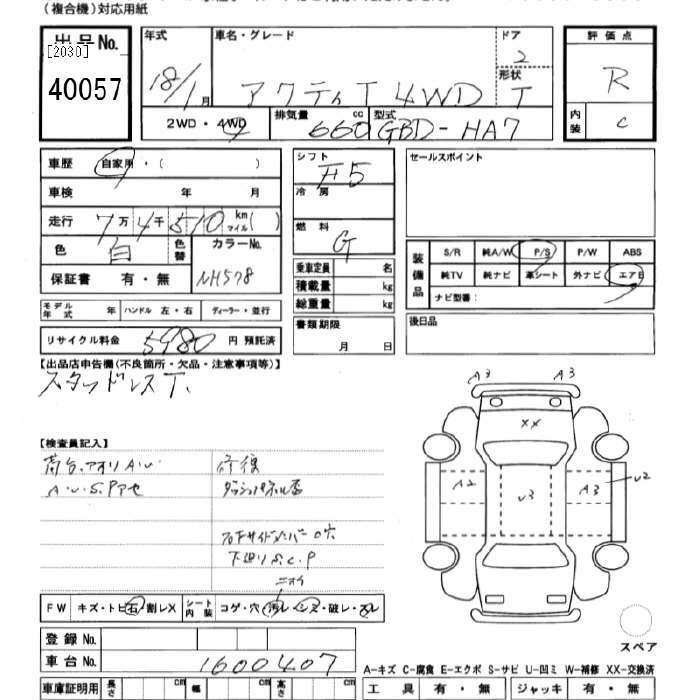 (複合機)対応用紙
出品No.
[2030]
40057
年式 車名・グレード ドア 評価点
18/1 月 アクティT 4WD 2 形状 T R
2WD・4WD 排気量 660 cc 型式 GBD-HA7 内装 C
車歴 自家用・( )
車検 年 月
走行 7万4千510 km マイル( )
色 白 色替 カラーNo.
保証書 有・無 NH578
モデル年式 年 ハンドル 左・右 ディーラー・並行
リサイクル料金 5980 円 預託済
シフト F5
冷房
燃料 G
乗車定員 名
積載量 kg
総重量 kg
書類期限
月 日
セールスポイント
装備品 S/R 純A/W P/S P/W ABS
純TV 純ナビ 革シート 外ナビ エアB
ナビ型番:
後日品
【出品店申告欄(不良箇所・欠品・注意事項等)】
スタッドレスT.
【検査員記入】
荷台、アオリA・U 修復
A・U・S・Pアセ
下廻りS.C.P
ニオイ
A3 A3
XX
A2 U3 A3 U2
FW キズ・トビ石・割レX シート内装 コゲ・穴・汚レ・シミ・破レ・スレ
登録No.
車台No. 1600407
車庫証明用 長さ cm 幅 cm 高さ cm
スペア
A-キズ C-腐食 E-エクボ S-サビ U-凹ミ W-補修 XX-交換済
工具 有・無 ジャッキ 有・無